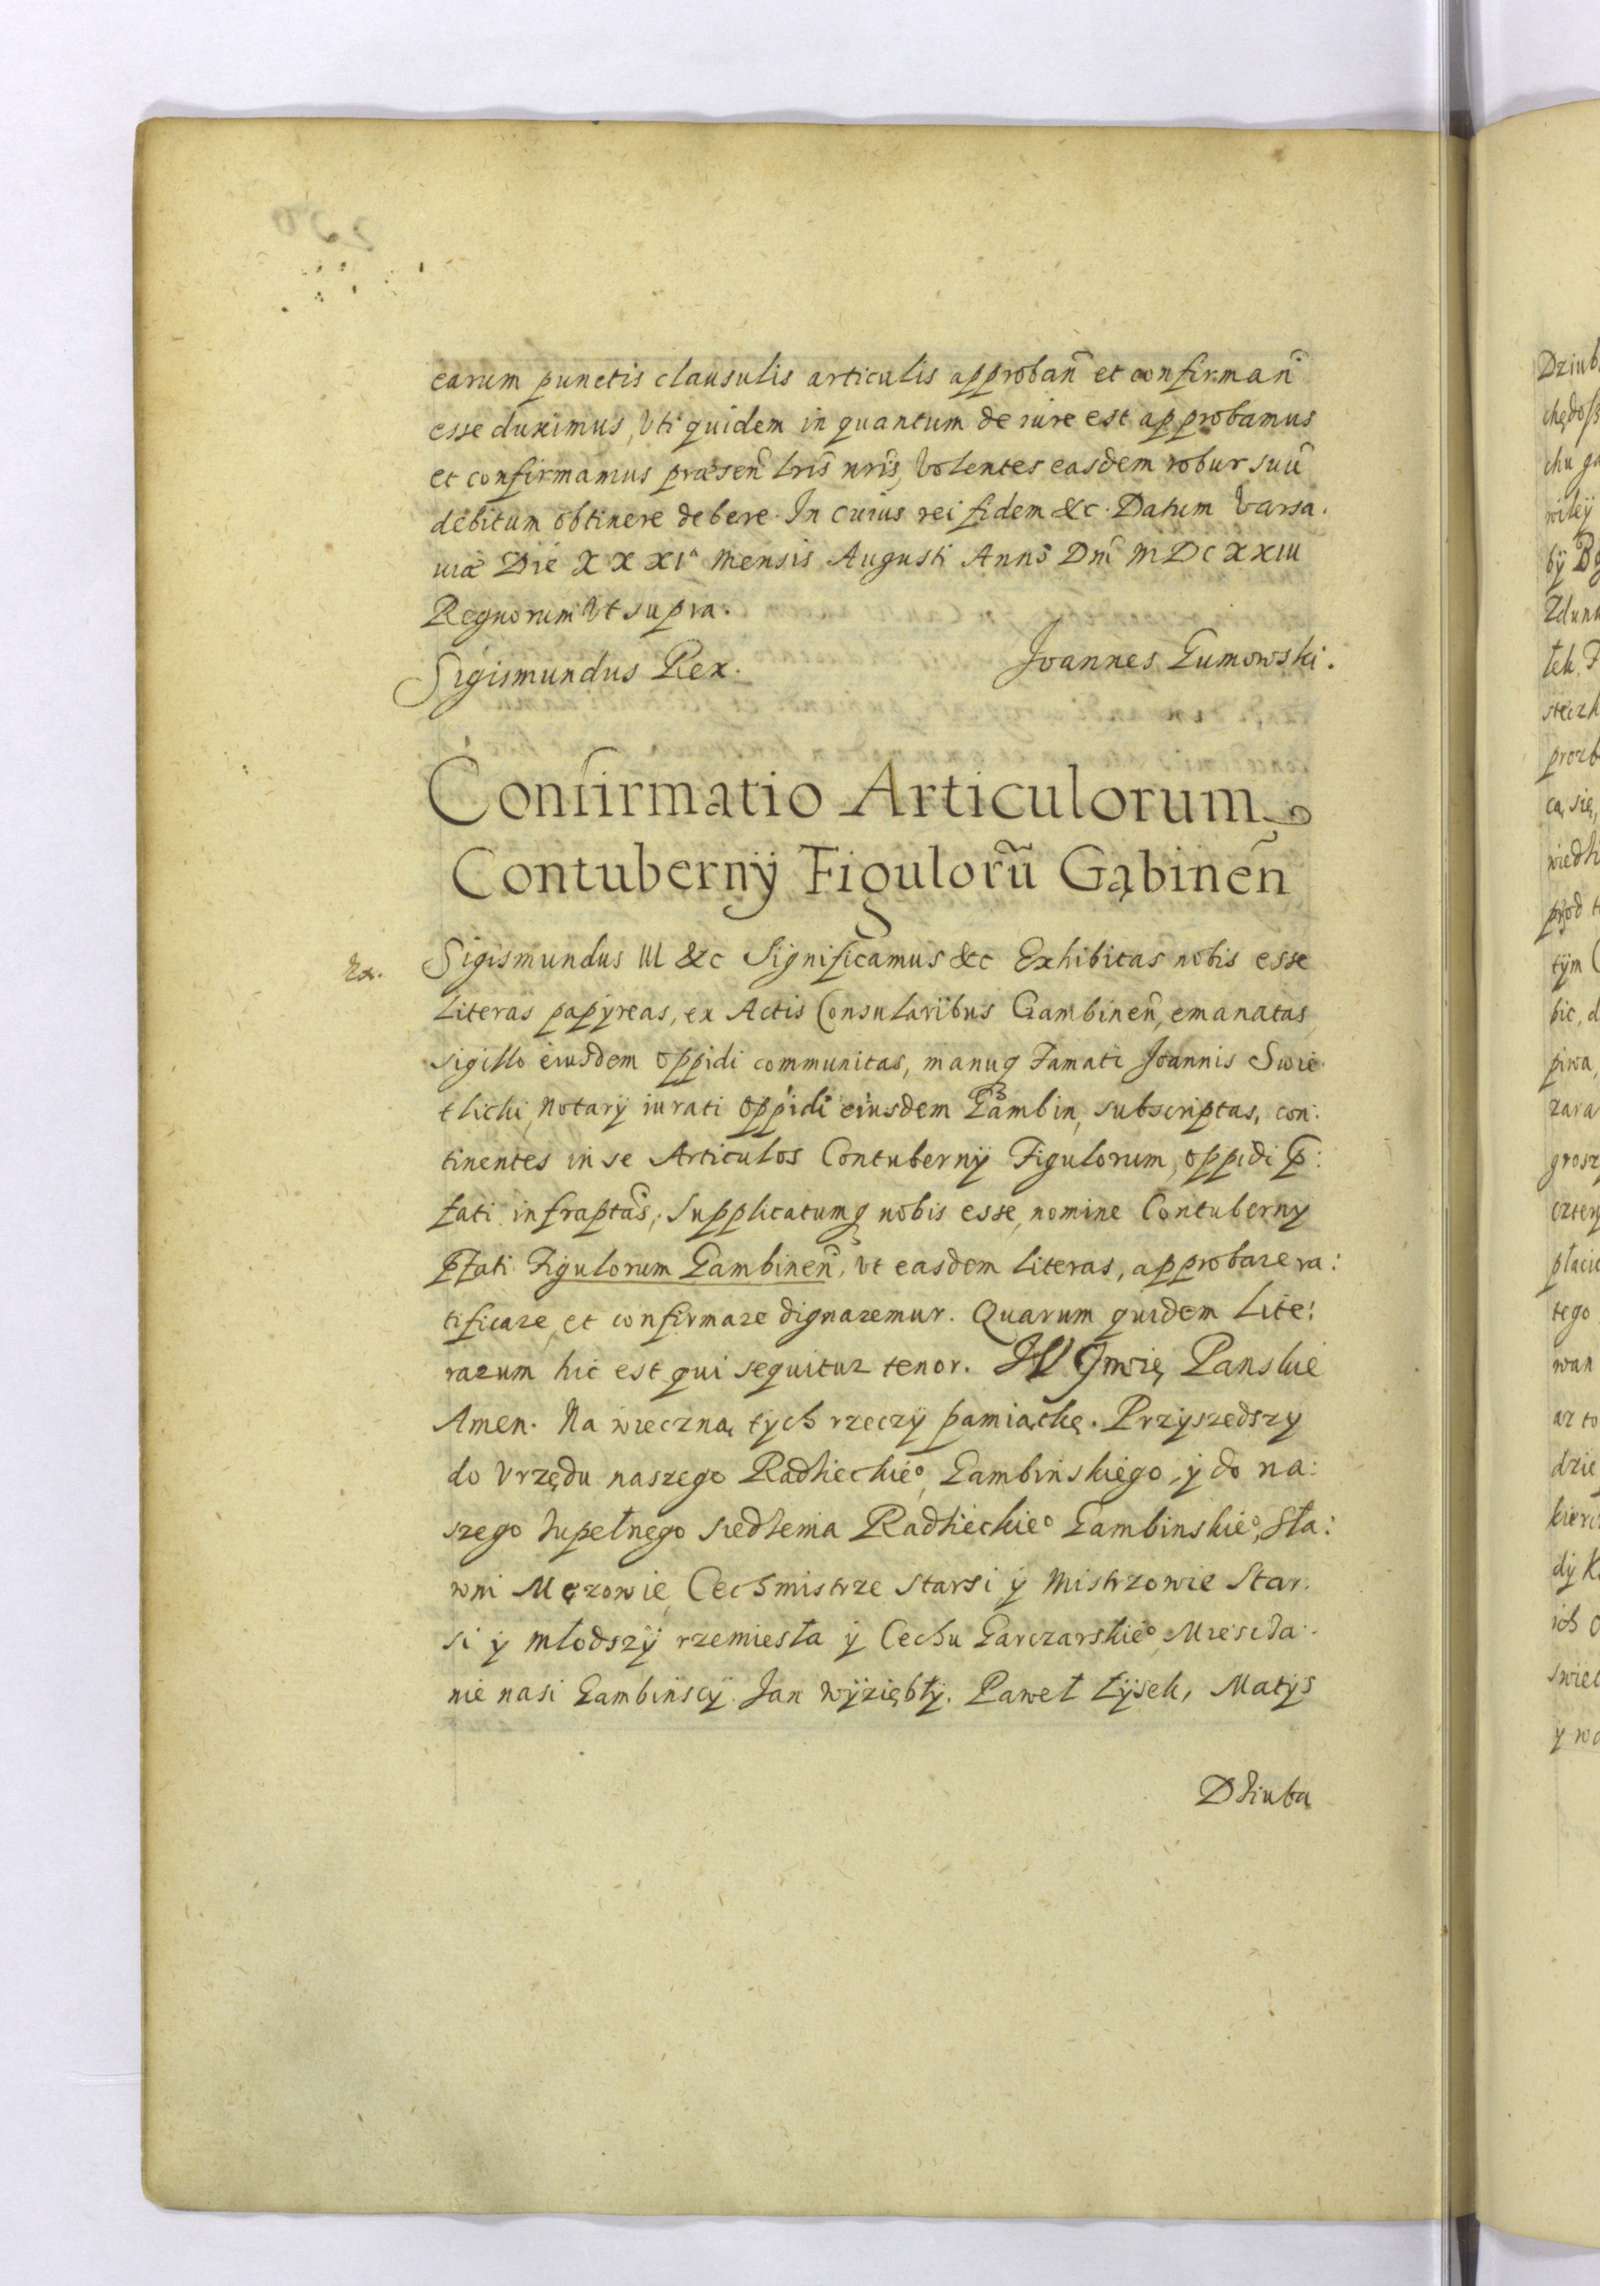 earum punctis clausulis articulis approban̄ et confirman̄
esse duximus, Vti quidem in quantum de iure est approbamus
et confirmamus præsen̄ lr̃is nr̃is, Volentes easdem robur suū
debitum obtinere debere. In cuius rei fidem &c. Datum Varsa.
uiæ Die XXXIª Mensis Augusti Anno Dnī MDCXXIII
Regnorum Vt supra.
Sigismundus Rex. Joannes Gumowski.
Confirmatio Articulorum
Contubernÿ Figulorū Gąbinen̄
Sigismundus III &c Significamus &c Exhibitas nobis esse
Literas papÿreas, ex Actis Consularibus Gambinen̄, emanatas
sigillo eiusdem oppidi communitas, manuq Famati Joannis Swie
tlicki, Notarÿ iurati oppidi eiusdem Gambin, subscriptas, con:
tinentes in se Articulos Contubernÿ Figulorum, oppidi p̄:
fati infraptas, Supplicatumq nobis esse, nomine Contuberny
p̄fati Figulorum Gambinen̄, Vt easdem literas, approbare ra:
tificare, et confirmare dignaremur. Quarum quidem Lite:
rarum hic est qui sequitur tenor. W Jmię Panskie
Amen. Na wieczną tych rzeczÿ pamiątkę. Przÿszedszy
do Vrzędu naszego Radzieckieº, Gambinskiego, ÿ do na:
szego zupełnego siedzenia Radzieckieº Gambinskieº, Sła:
wni Męzowie, Cechmistrze starsi ÿ Mistrzowie Star.
si ÿ młodszÿ rzemiesła ÿ Cechu Garczarskieº, Miescza:
nie nasi Gambinscÿ. Jan Wÿziębłÿ. Paweł Łÿsek, Matÿs
Dziuba